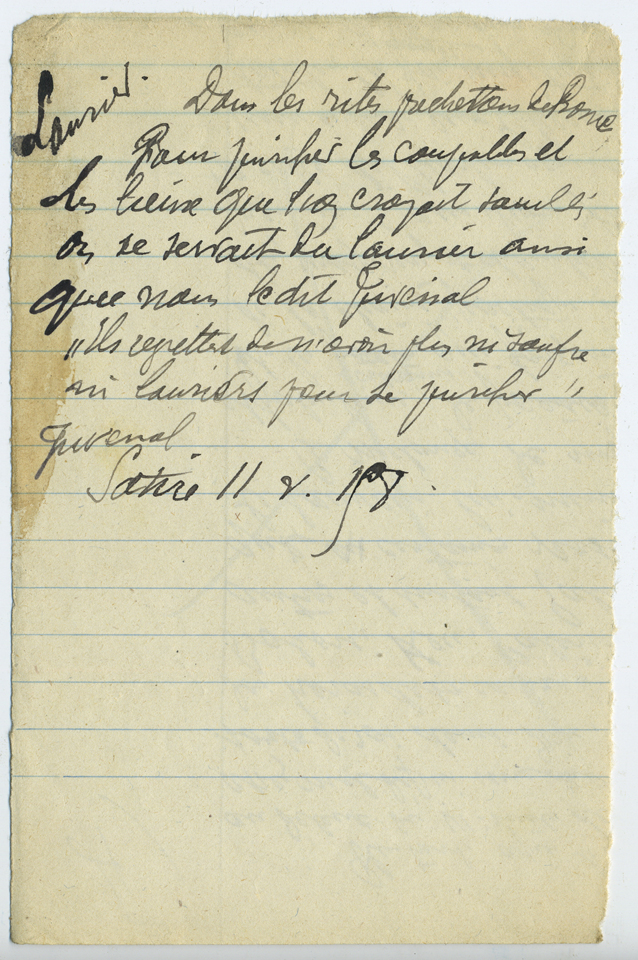 Laurier.
Dans les rites de Rome
Pour purifier les coupables et
les lieux que l'on croyait souillés
on se servait du laurier ainsi
que nous le dit Juvénal
"Ils regrettent de n'avoir plus ni soufre
ni lauriers pour se purifier"
Juvenal
Satire II v.